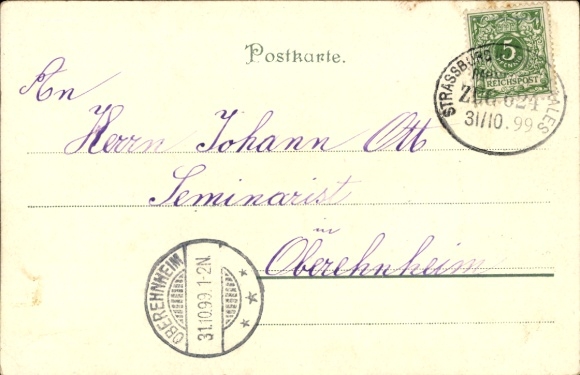 Postkarte.
5
PFENNIG
REICHSPOST
STRASSBURG
Zug 624
31/10.99
ALES
An
Herrn Johann Ott
Seminarist
in
Oberehnheim
OBEREHNHEIM
31.10.99.1-2N.